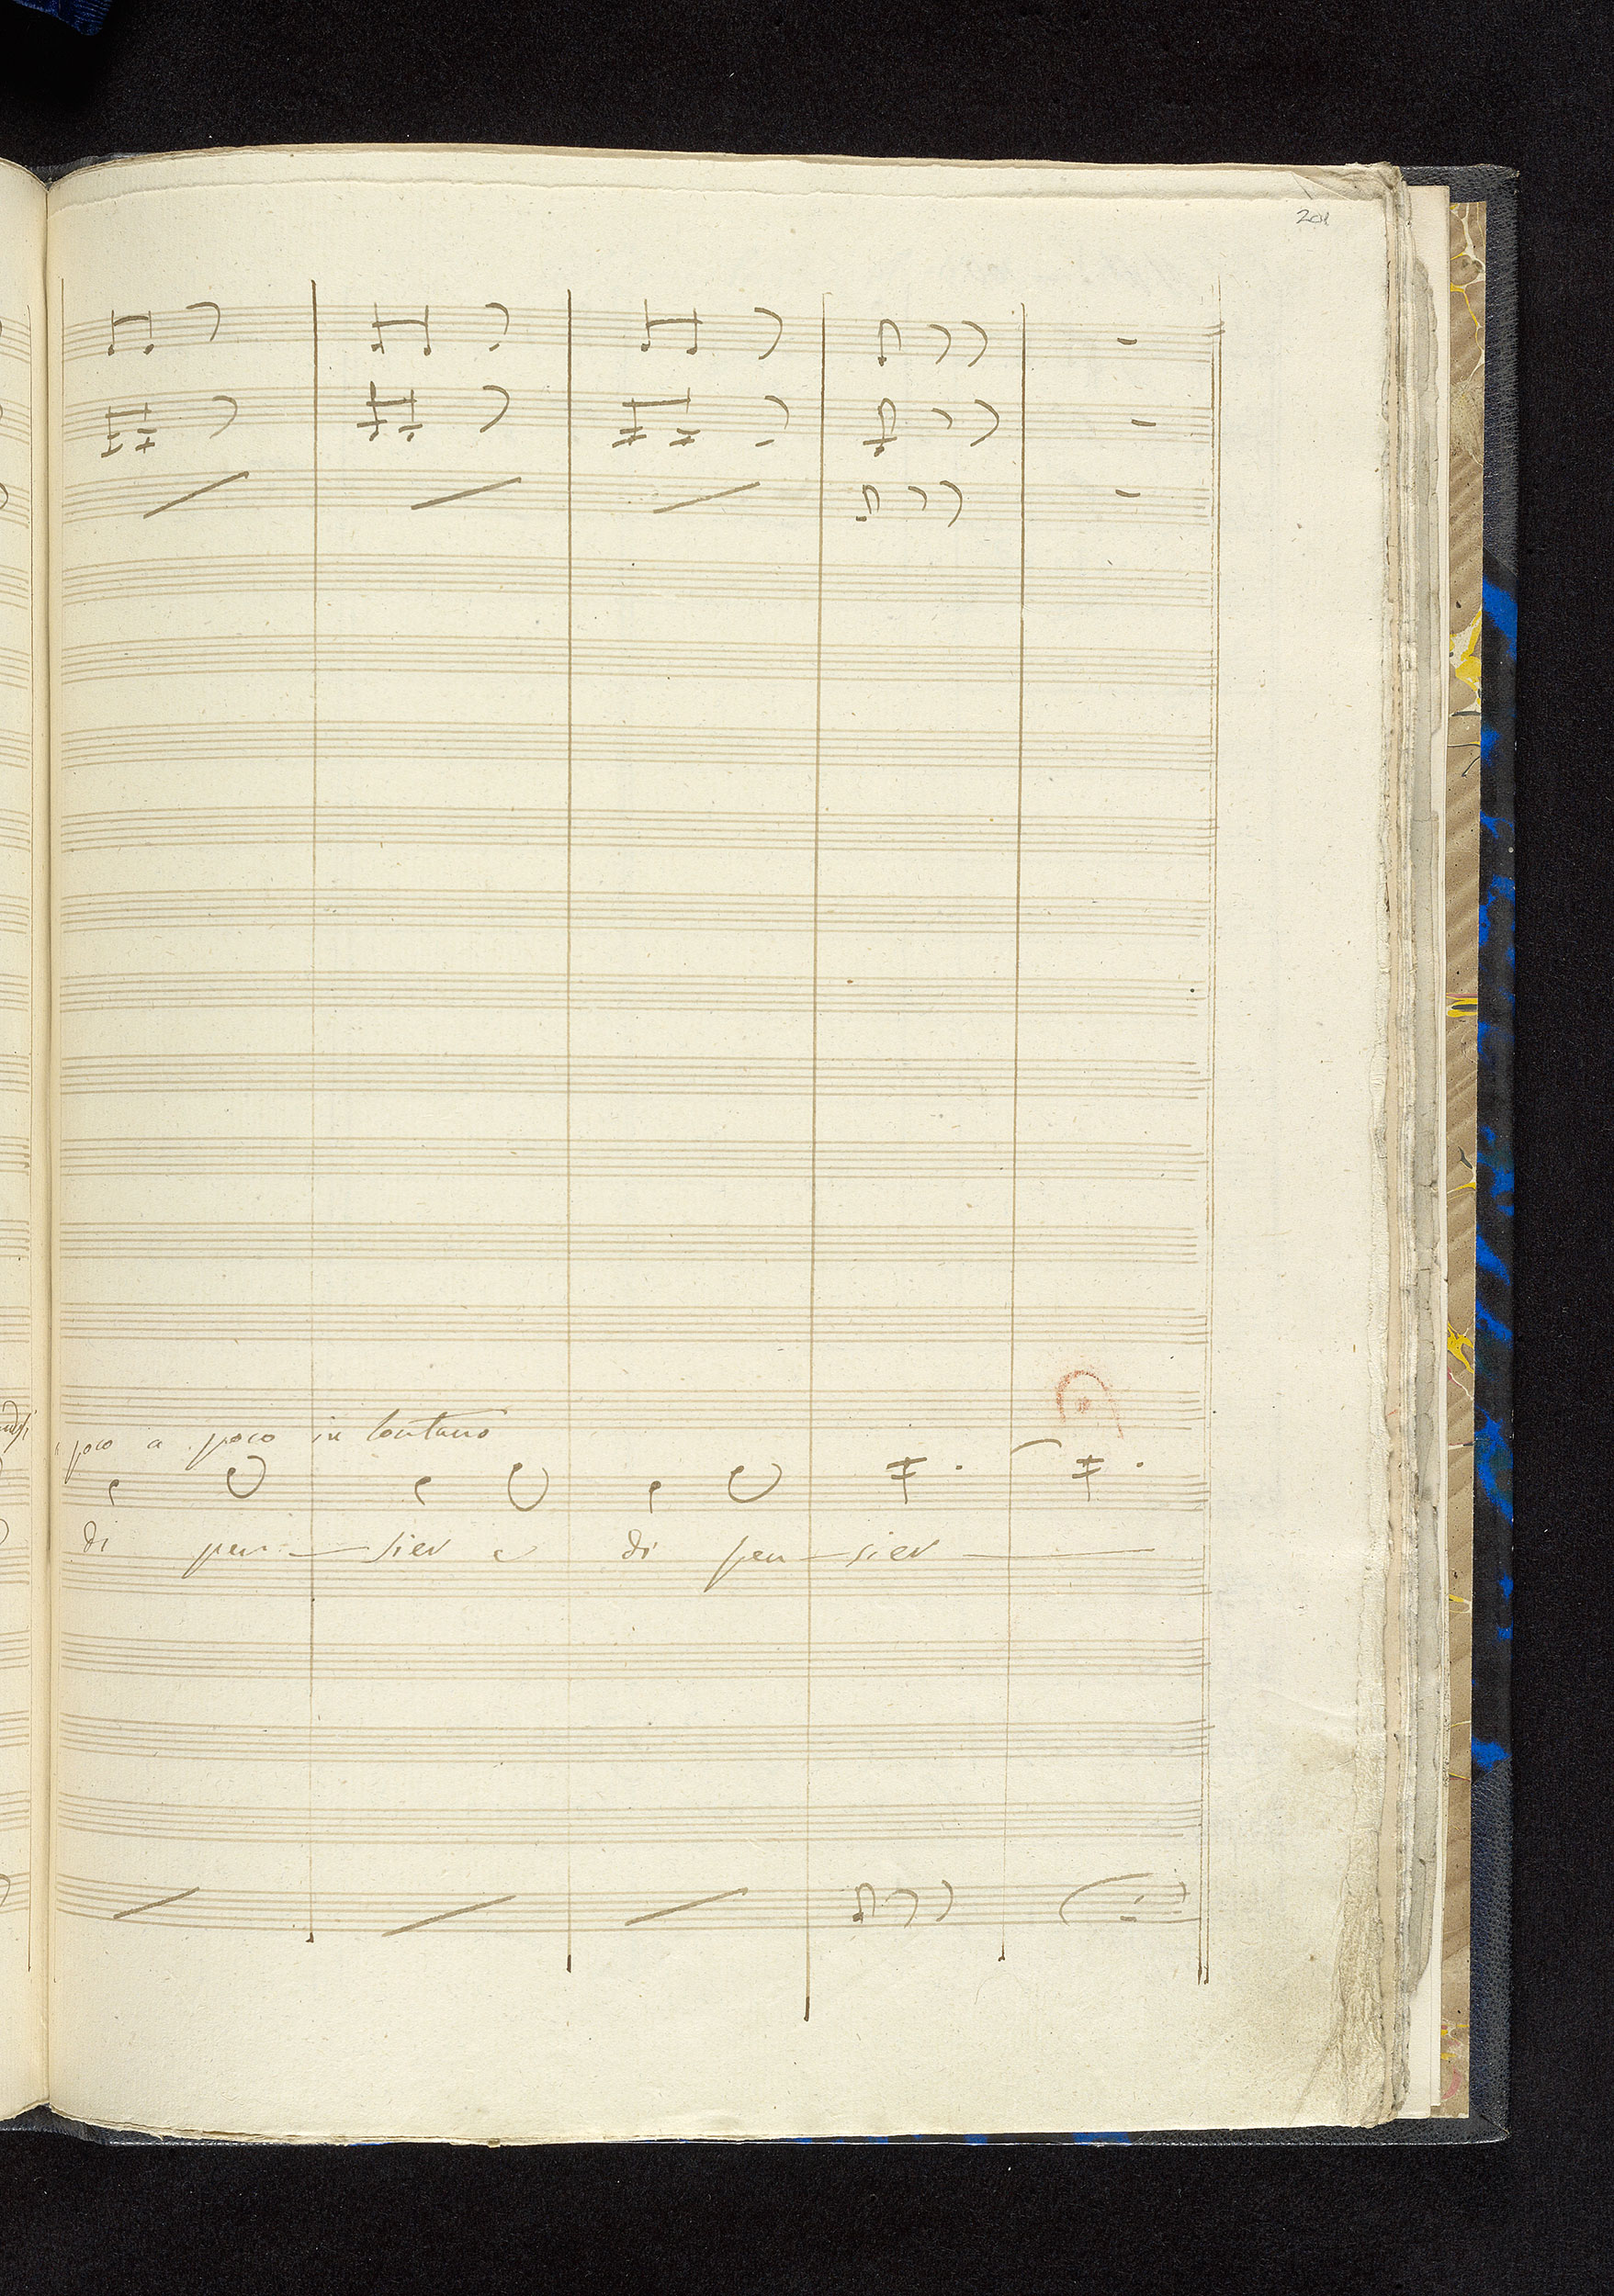 201
poco a poco in lontano
di pen - sier e di pen - sier